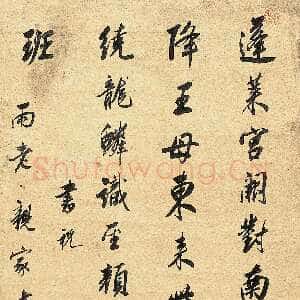 蓬莱宫阙對南
降王母東来紫
绕龍鳞識圣颜
班
雨老·親家
書祝
Shufawang.cn